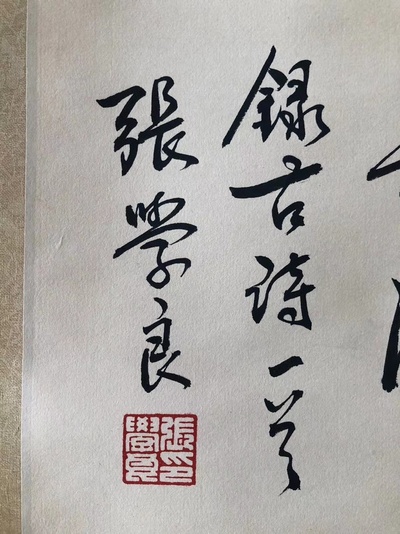 錄古詩一首
張學良
張印
學良